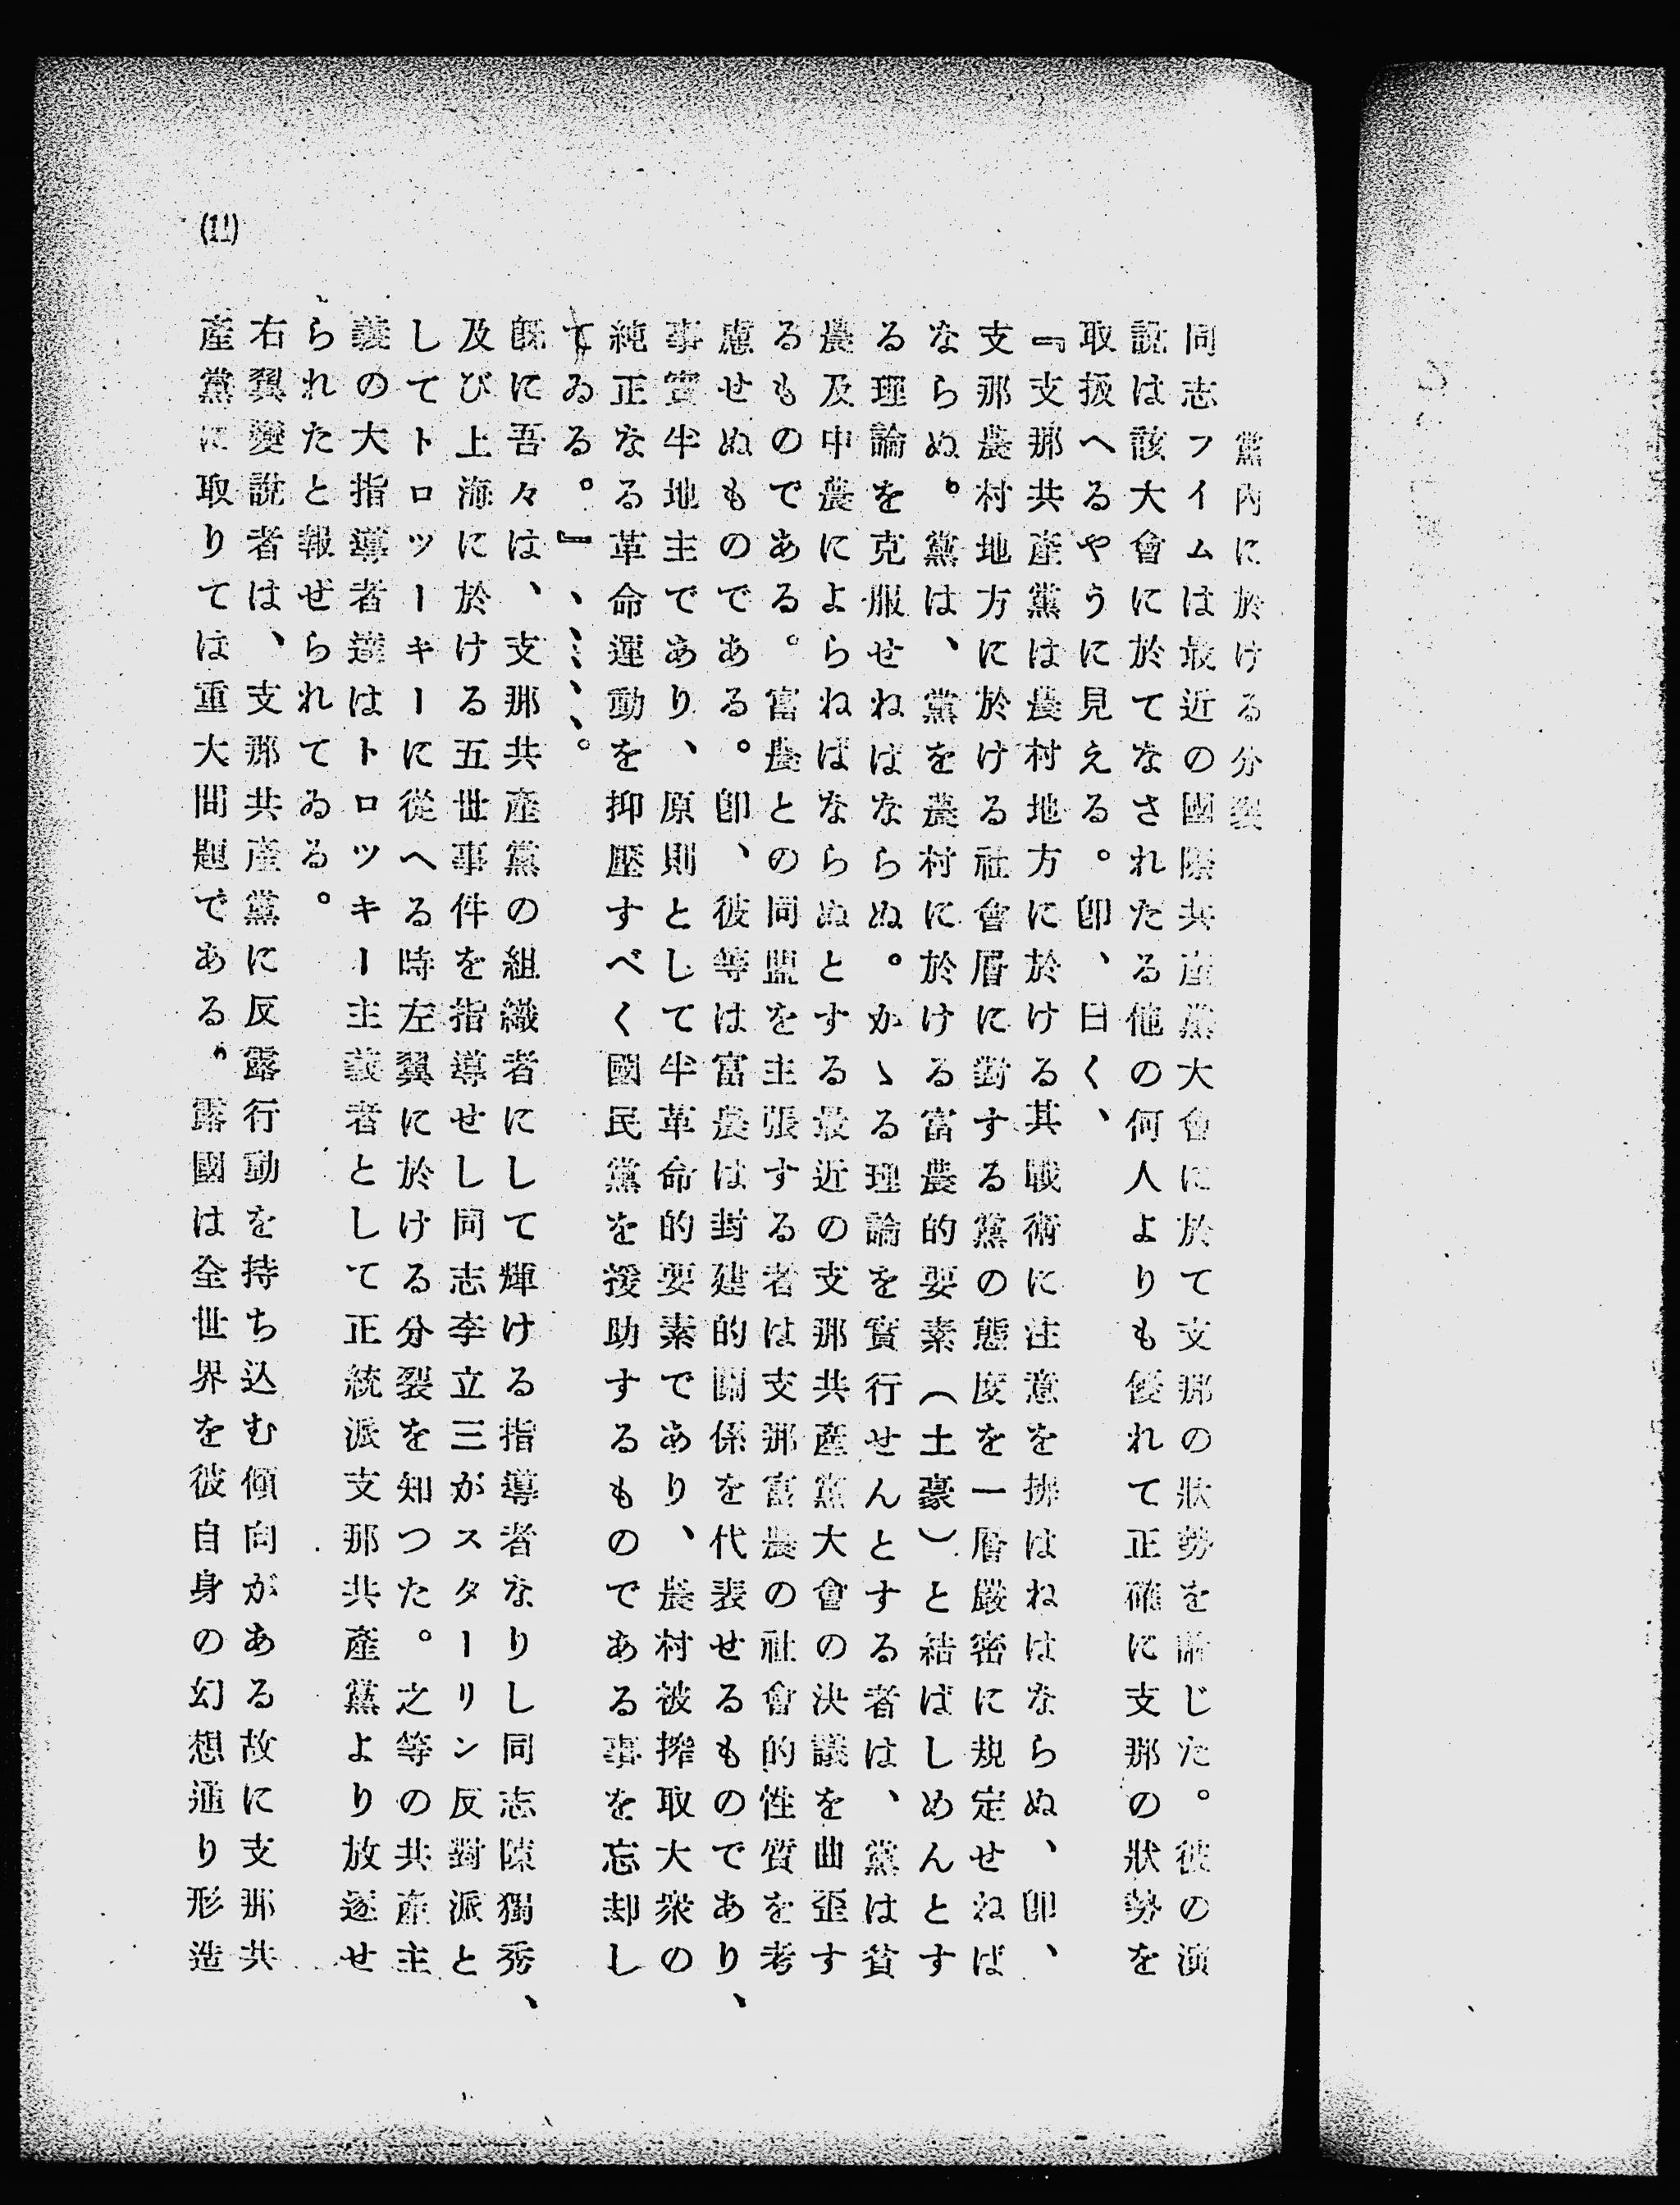 黨內に於ける分裂
同志フイムは最近の國際共産黨大會に於て支那の狀勢を論じた。彼の演
説は該大會に於てなされたる他の何人よりも優れて正確に支那の狀勢を
取扱へるやうに見える。卽、曰く、
『支那共産黨は農村地方に於ける其戰術に注意を拂はねはならぬ、卽、
支那農村地方に於ける社會層に對する黨の態度を一層嚴密に規定せねば
ならぬ。黨は、黨を農村に於ける富農的要素（土豪）と結ばしめんとす
る理論を克服せねはならぬ。かゝる理論を實行せんとする者は、黨は貧
農及中農によらねばならぬとする最近の支那共産黨大會の決議を曲歪す
るものである。富農との同盟を主張する者は支那富農の社會的性質を考
慮せぬものである。卽、彼等は富農は封建的關係を代表せるものであり、
事實半地主であり、原則として半革命的要素であり、農村被搾取大衆の
純正なる革命運動を抑壓すべく國民黨を援助するものである事を忘却し
てゐる。』、、、、。
旣に吾々は、支那共産黨の組織者にして輝ける指導者なりし同志陳獨秀、
及び上海に於ける五世事件を指導せし同志李立三がスターリン反對派と
してトロツーキーに從へる時左翼に於ける分裂を知つた。之等の共産主
義の大指導者達はトロツキー主義者として正統派支那共産黨より放逐せ
られたと報ぜられてゐる。
右翼變說者は、支那共産黨に反露行動を持ち込む傾向がある故に支那共
産黨に取りては重大問題である。露國は全世界を彼自身の幻想通り形造
(11)